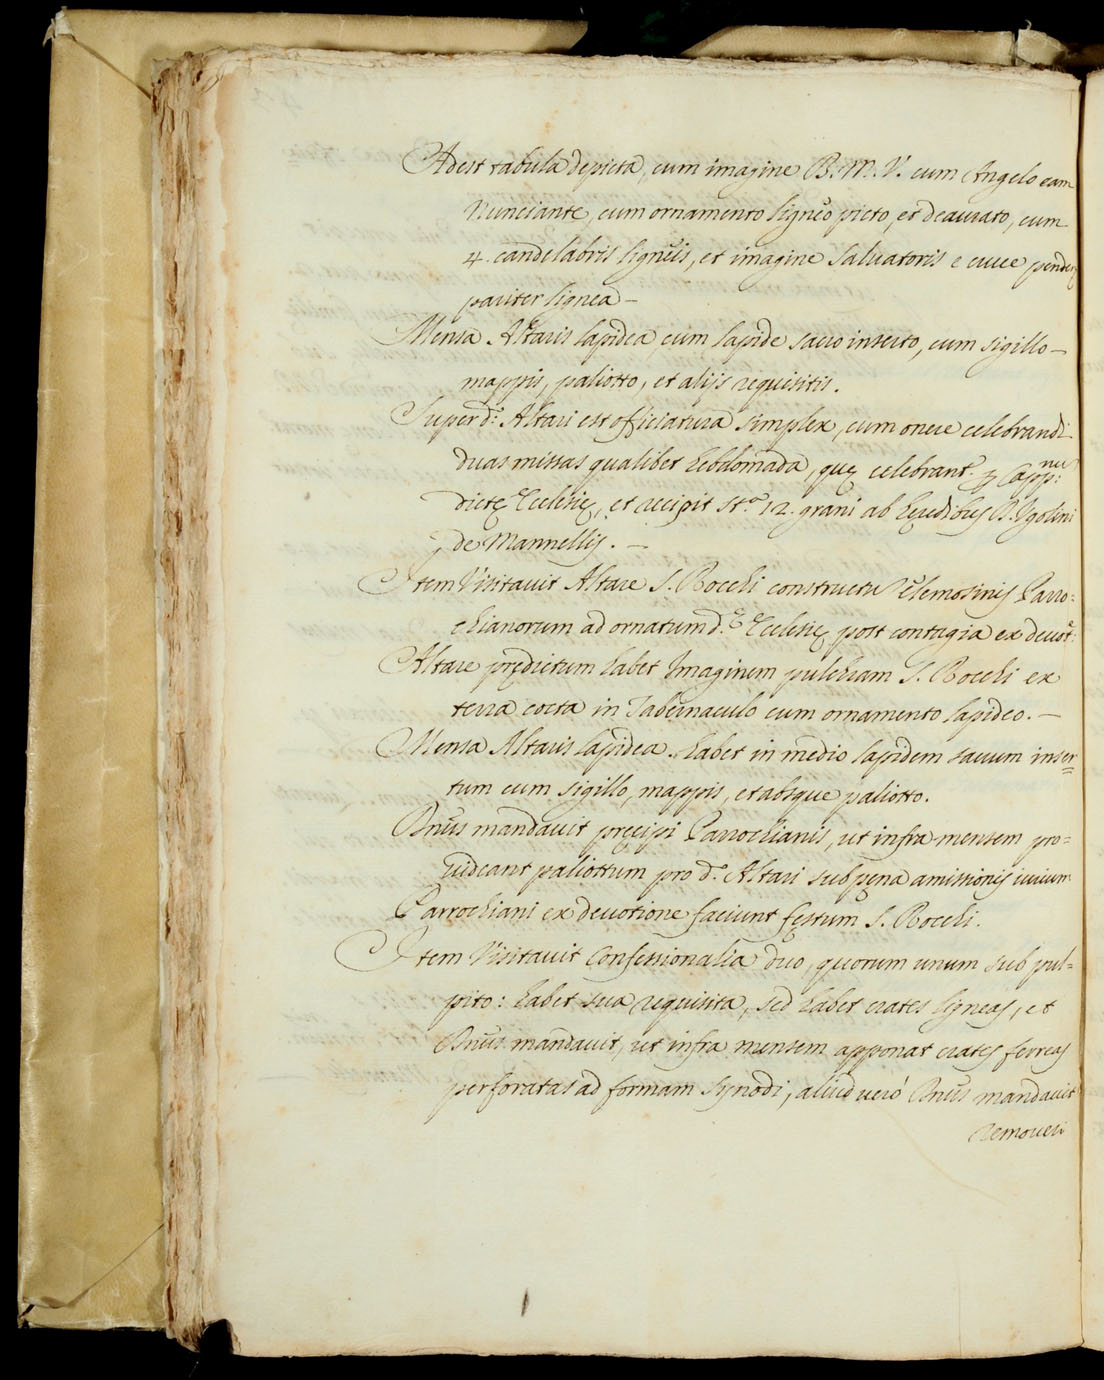 Adest tabula depicta, cum imagine B. M. V. cum Angelo eam
Nunciante, cum ornamento ligneo picto, et deaurato, cum
4. candelabris ligneis, et imagine Saluatoris e cruce pendenꝫ
pariter lignea –
Mensa Altaris lapidea, cum lapide sacro inserto, cum sigillo –
mappis, paliotto, et alijs requisitis.
Super d.º Altari est officiatura simplex, cum onere celebrandi
duas missas qualibet hebdomada, quę celebrant.r ꝑ Capp:num
dictę Ecclesię, et recipit st.ª 12. grani ab hęredibus D. Vgolini
de Mannellis. –
Item Visitauit Altare S. Rocchi constructũ elemosinis Parro:
chianorum ad ornatum d.ę Ecclesię post contagia ex deuot:
Altare prędictum habet Imaginem pulchram S. Rocchi ex
terra cocta in Tabernaculo cum ornamento lapideo. –
Mensa Altaris lapidea. habet in medio lapidem sacrum inser=
tum cum sigillo, mappis, et absque paliotto.
Dnũs mandauit pręcipi Parrochianis, ut infra mensem pro=
uideant paliottum pro d.º Altari sub pęna amissionis iurium
Parrochiani ex deuotione faciunt festum S. Rocchi.
Item Visitauit Confessionalia duo, quorum unum sub pul=
pito: habet sua requisita, sed habet crates ligneas, et
Dnũs mandauit, ut infra mensem apponat crates ferreas
perforatas ad formam synodi, aliud uerò Dnũs mandauit
remoueri